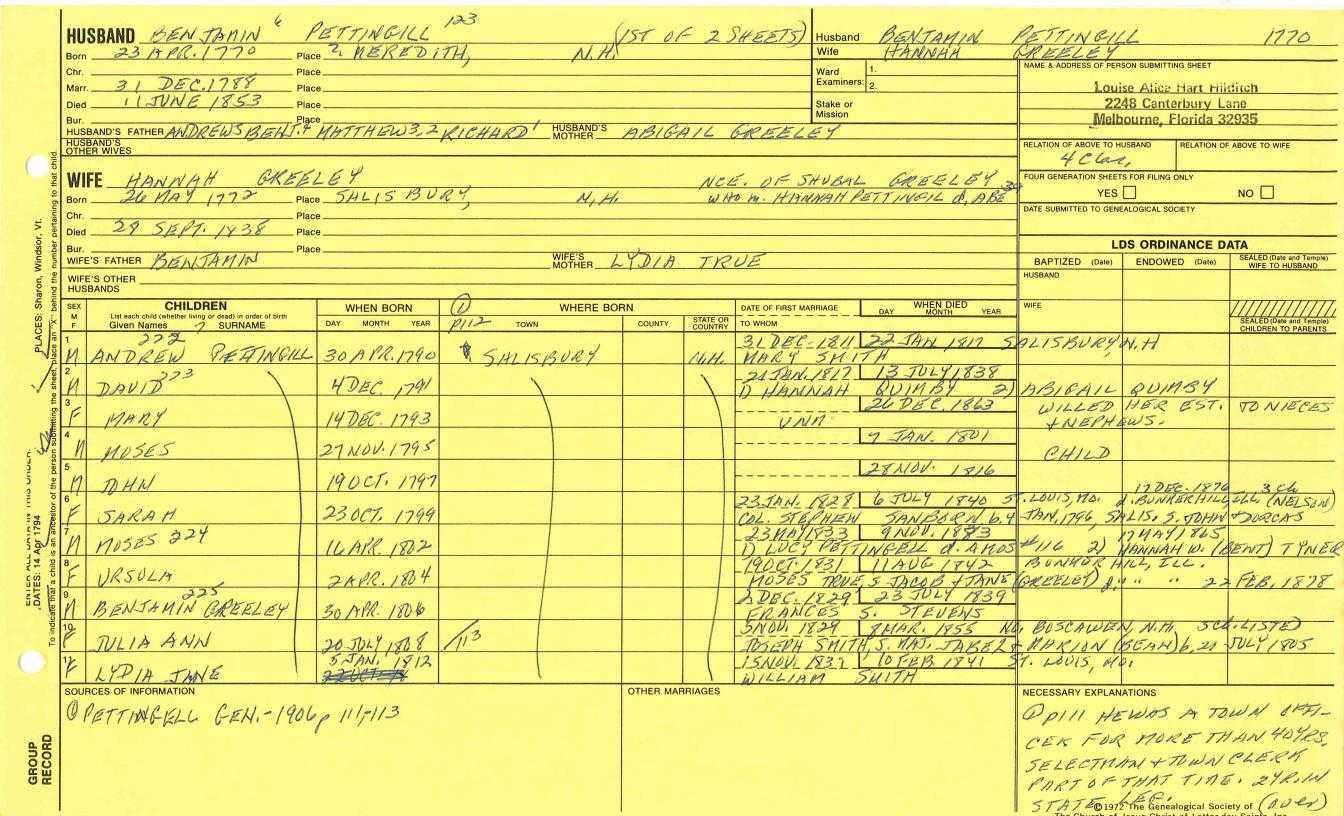 HUSBAND BENJAMIN 6 PETTINGILL 123 (1ST OF 2 SHEETS)
Born 23 APR. 1770 Place ? MEREDITH, N.H.
Chr. Place
Marr. 31 DEC. 1788 Place
Died 11 JUNE 1853 Place
Bur. Place
HUSBAND'S FATHER ANDREW5 BENJ.4 MATTHEW3,2 RICHARD1 HUSBAND'S MOTHER ABIGAIL GREELEY
HUSBAND'S OTHER WIVES
Husband BENJAMIN PETTINGILL 1770
Wife HANNAH GREELEY
Ward Examiners: 1.
2.
Stake or Mission
NAME & ADDRESS OF PERSON SUBMITTING SHEET
Louise Alice Hart Hilditch
2248 Canterbury Lane
Melbourne, Florida 32935
RELATION OF ABOVE TO HUSBAND RELATION OF ABOVE TO WIFE
FOUR GENERATION SHEETS FOR FILING ONLY
YES NO
DATE SUBMITTED TO GENEALOGICAL SOCIETY
WIFE HANNAH GREELEY NCE. OF SHUBAL GREELEY
Born 26 MAY 1772 Place SALISBURY, N.H. WHO m. HANNAH PETTINGIL d. ABE
Chr. Place
Died 29 SEPT. 1838 Place
Bur. Place
WIFE'S FATHER BENJAMIN WIFE'S MOTHER LYDIA TRUE
WIFE'S OTHER HUSBANDS
LDS ORDINANCE DATA
BAPTIZED (Date) ENDOWED (Date) SEALED (Date and Temple) WIFE TO HUSBAND
HUSBAND
WIFE
SEALED (Date and Temple) CHILDREN TO PARENTS
SEX M F CHILDREN WHEN BORN ① WHERE BORN DATE OF FIRST MARRIAGE WHEN DIED
List each child (whether living or dead) in order of birth
Given Names 7 SURNAME DAY MONTH YEAR p112 TOWN COUNTY STATE OR COUNTRY TO WHOM DAY MONTH YEAR
222
1 M ANDREW PETTINGILL 30 APR. 1790 SALISBURY N.H. 31 DEC. 1811 22 JAN. 1817 SALISBURY, N.H
MARY SMITH
2 M DAVID 223 4 DEC. 1791 21 JAN. 1817 13 JULY 1838
1) HANNAH QUIMBY 2) ABIGAIL QUIMBY
3 F MARY 14 DEC. 1793 26 DEC. 1863 WILLED HER EST. TO NIECES
UNM + NEPHEWS.
4 M MOSES 27 NOV. 1795 7 JAN. 1801 CHILD
5 M JOHN 19 OCT. 1797 28 NOV. 1816
17 DEC. 1876 3 Ch
6 F SARAH 23 OCT. 1799 23 JAN. 1828 6 JULY 1840 ST. LOUIS, MO. d. BUNKER HILL, ILL. (NELSON)
COL. STEPHEN SANBORN b. 4 JAN. 1796, SALIS. S. JOHN + DORCAS
7 M MOSES 224 16 APR. 1802 23 MAY 1833 9 NOV. 1883 17 MAY 1865
1) LUCY PETTINGELL d. AMOS #116 2) HANNAH W. (BENT) TYNER
8 F URSULA 2 APR. 1804 19 OCT. 1831 11 AUG 1842 BUNKER HILL, ILL.
MOSES TRUE, S. JACOB + JANE (GREELEY) d. " " " 22 FEB. 1878
225
9 M BENJAMIN GREELEY 30 APR. 1806 2 DEC. 1829 23 JULY 1839
FRANCES S. STEVENS
10 F JULIA ANN 20 JULY 1808 /113 5 NOV. 1829 8 MAR. 1855 NO. BOSCAWEN, N.H.
JOSEPH SMITH, S. MAJ. JABEZ + MARION (BEAM) b. 21 JULY 1805
11 F LYDIA JANE 5 JAN. 1812 15 NOV. 1837 10 FEB 1841 ST. LOUIS, MO.
WILLIAM SMITH
SOURCES OF INFORMATION
① PETTINGELL GEN.-1906 p 111-113
OTHER MARRIAGES
NECESSARY EXPLANATIONS
① p111 HE WAS A TOWN OFFI-
CER FOR MORE THAN 40 YRS,
SELECTMAN + TOWN CLERK
PART OF THAT TIME. 2 YR. IN
STATE LEG. (over)
©1972 The Genealogical Society of
The Church of Jesus Christ of Latter-day Saints, Inc.
PLACES: Sharon, Windsor, Vt.
ENTER ALL DATA IN THIS ORDER:
DATES: 14 Apr 1794
To indicate that a child is an ancestor of the person submitting the sheet, place an "X" behind the number pertaining to that child.
GROUP RECORD